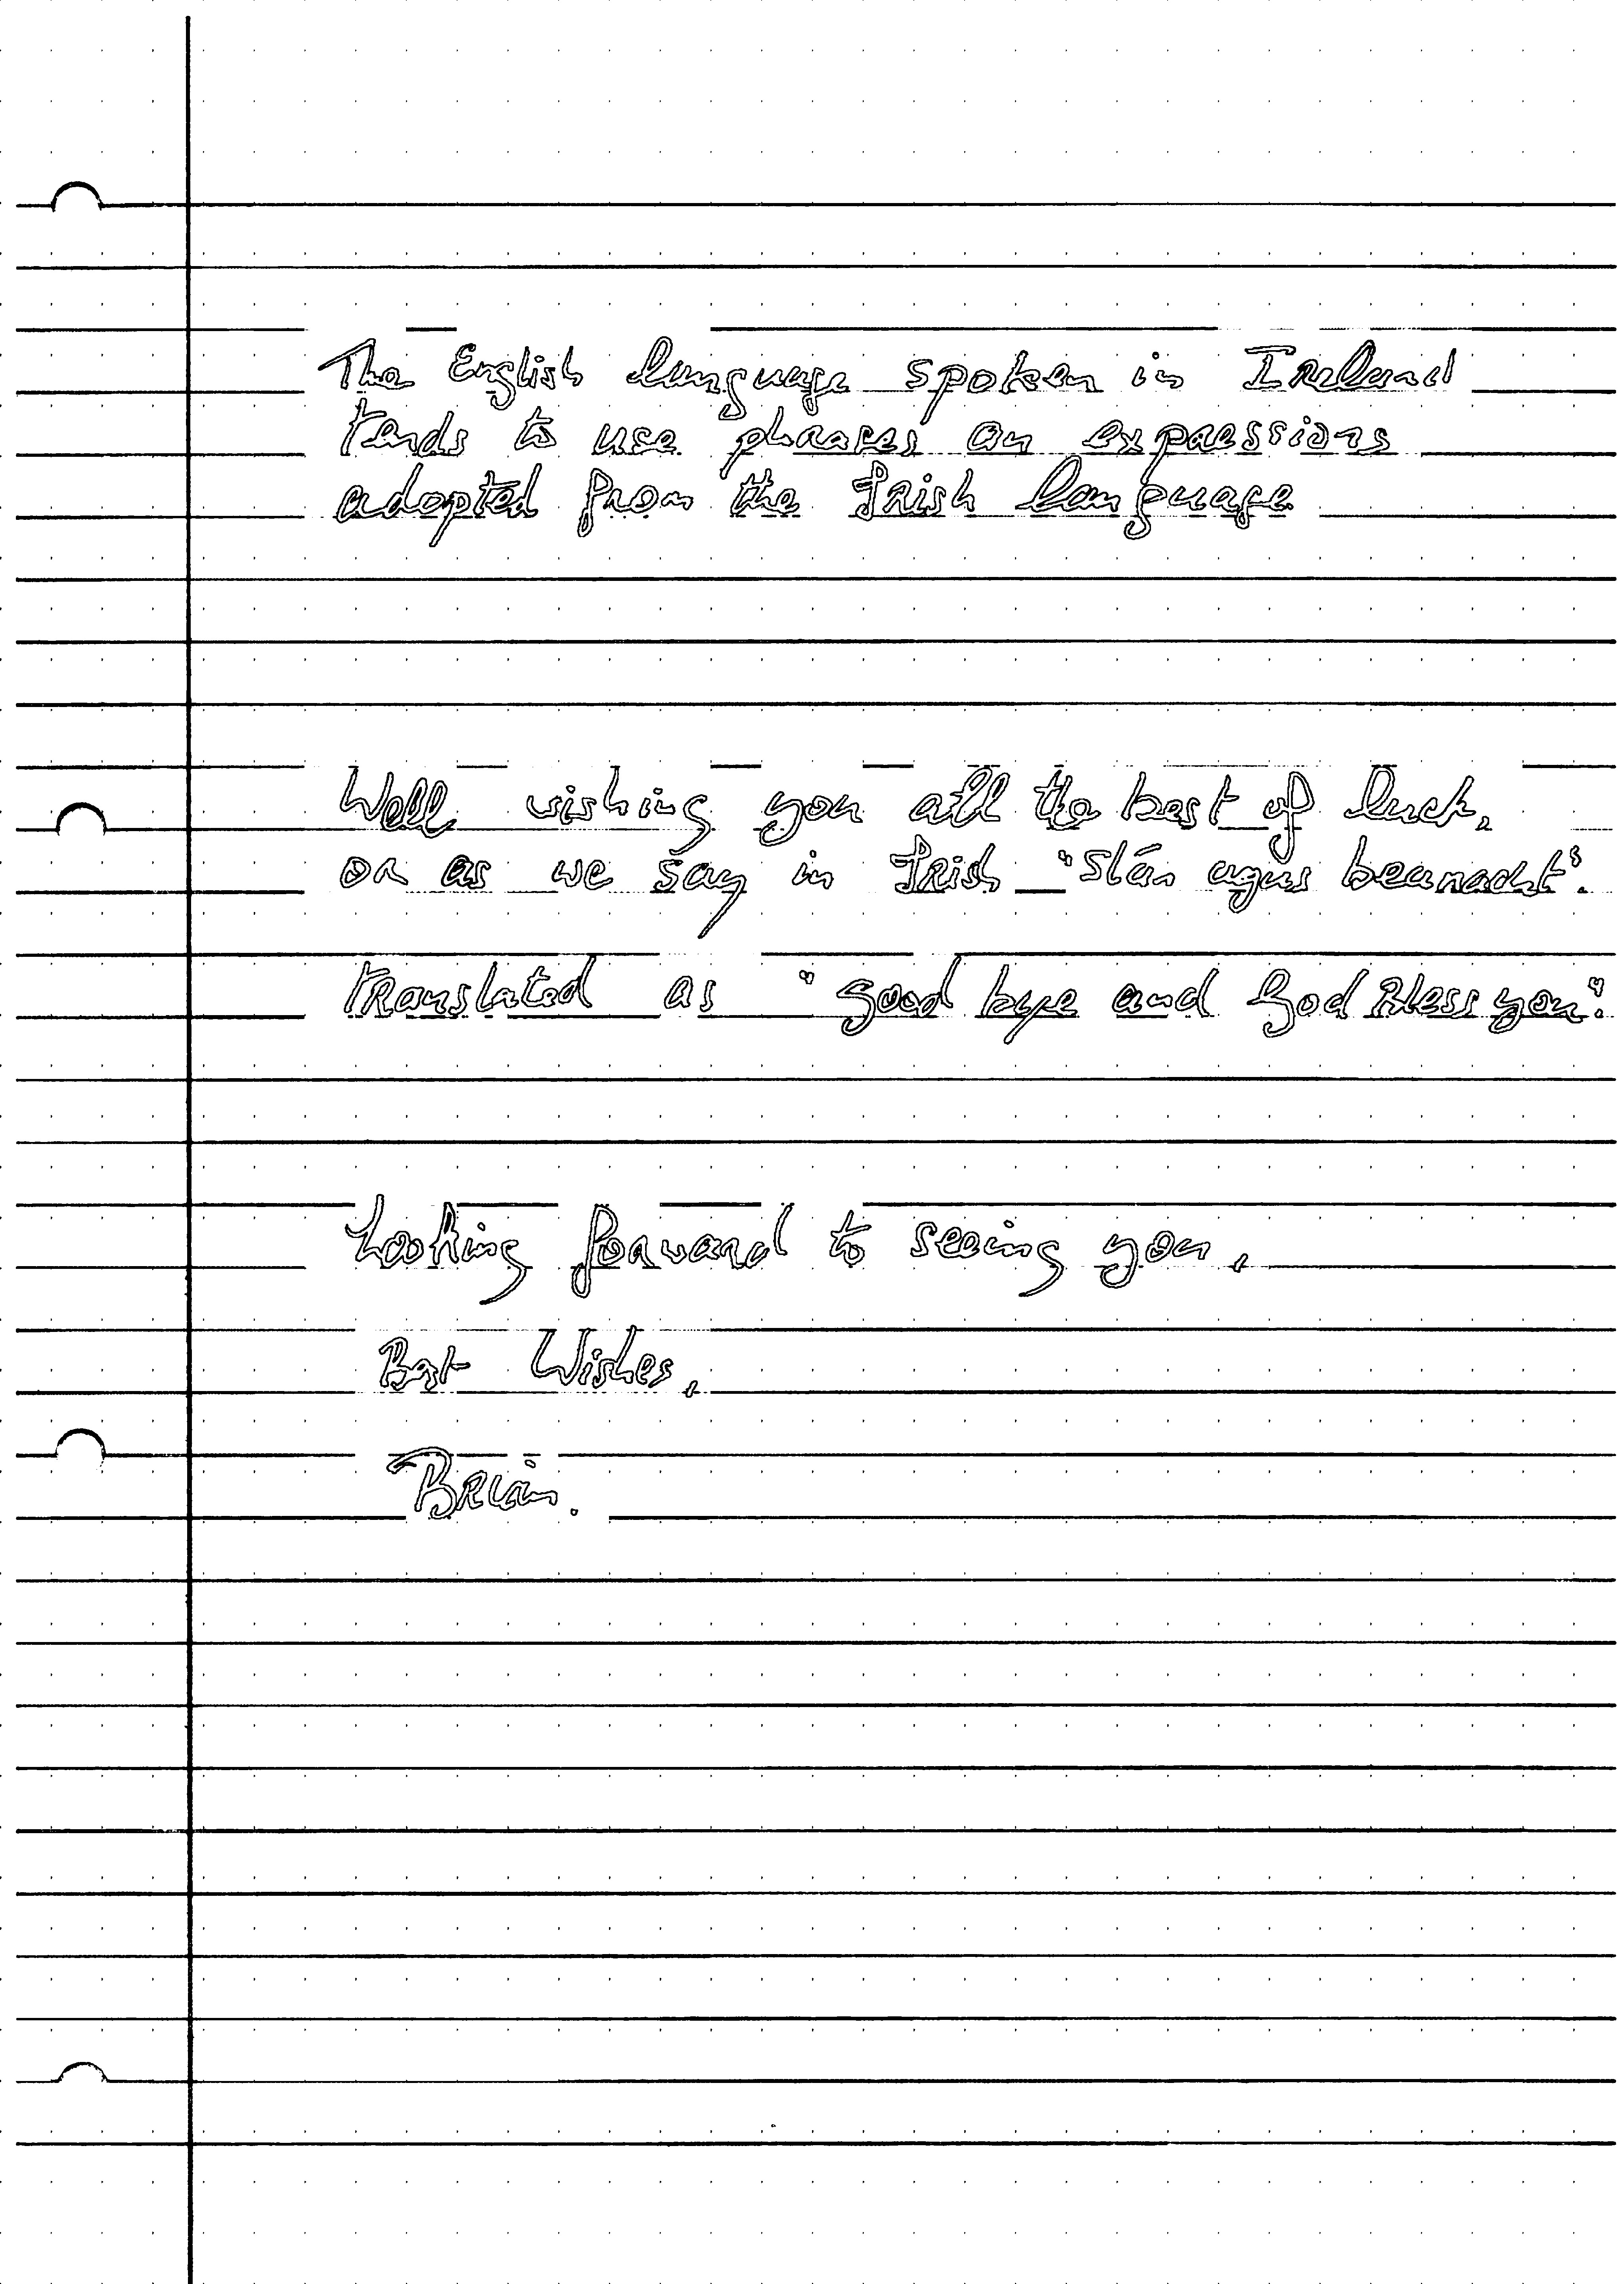 The English language spoken in Ireland
tends to use phrases or expressions
adopted from the Irish language.
Well wishing you all the best of luck,
or as we say in Irish "slán agus beannacht".
translated as "good bye and God Bless you".
Looking forward to seeing you,
Best Wishes,
Brian.